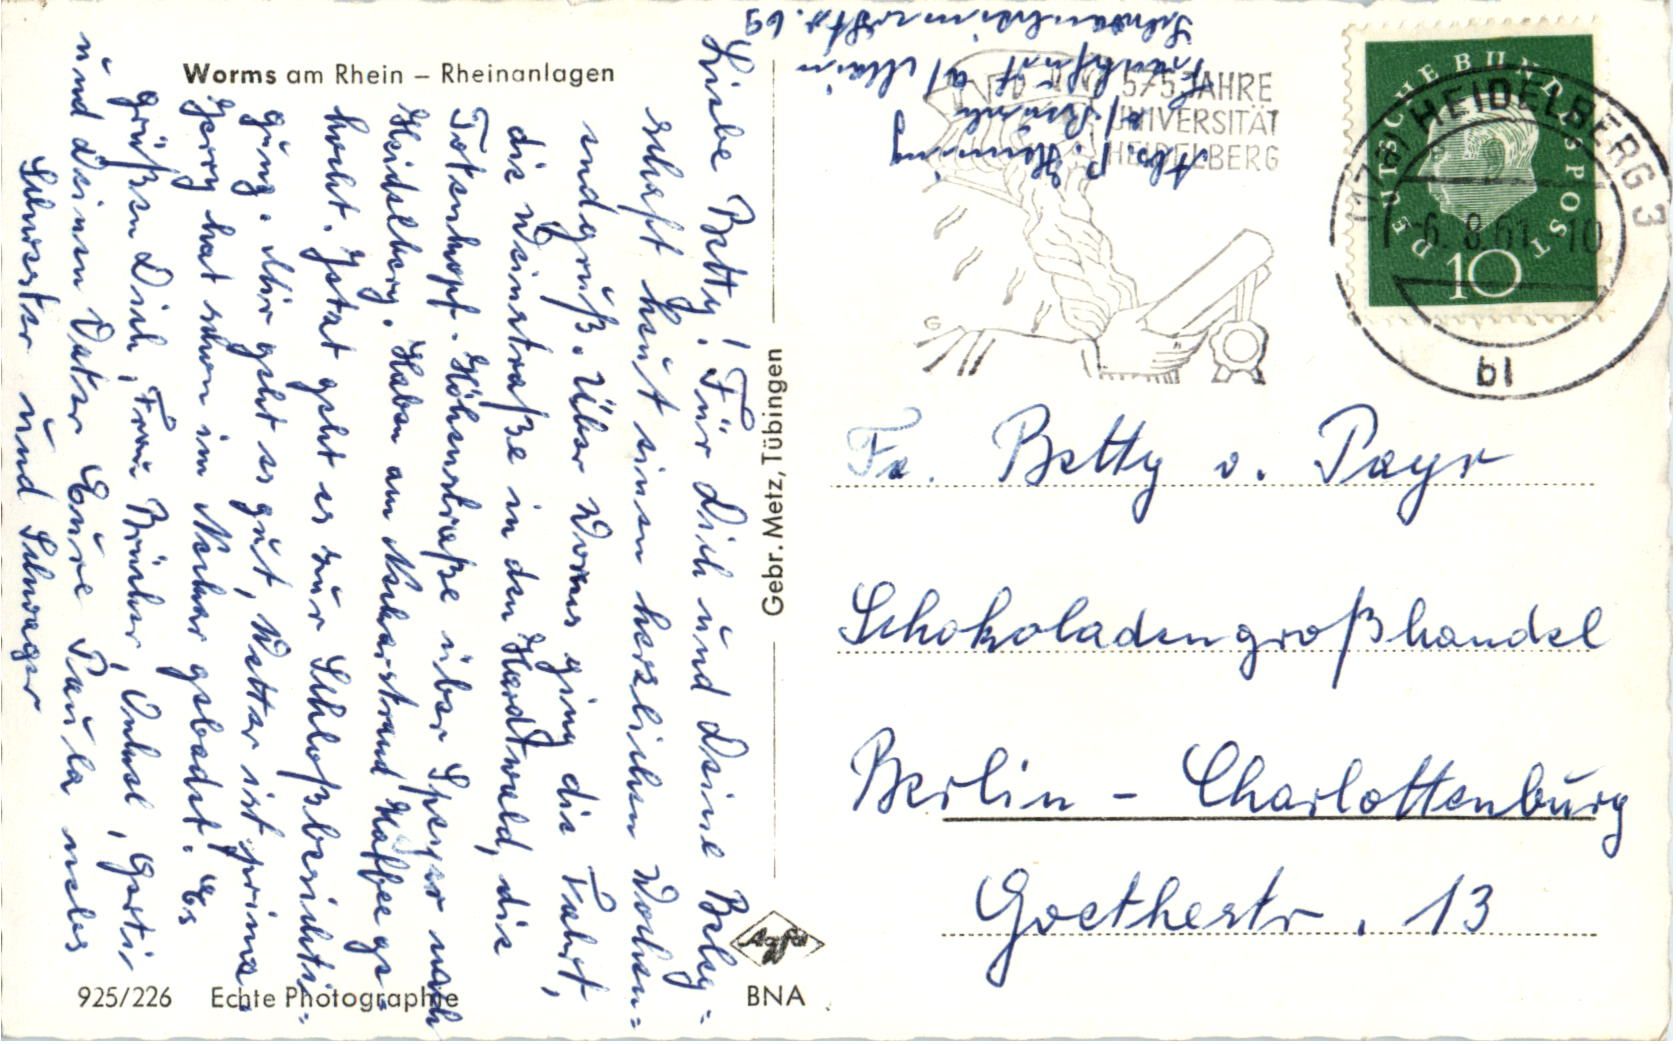 Worms am Rhein – Rheinanlagen
Liebe Betty! Für Dich und Deine Beleg=
schaft heut einen herzlichen Wochen=
endgruß. Über Worms ging die Fahrt,
die Weinstraße in den Hardtwald, die
Totenkopf-Höhenstraße über Speyer nach
Heidelberg. Haben am Neckarstrand Kaffee ge=
kocht. Jetzt geht es zur Schloßbesichti=
gung. Mir geht es gut, Wetter ist prima.
Gerry hat schon im Neckar gebadet. Es
grüßen Dich, Frau Brücher, Onkel, Gerti
und Deinen Vater Eure Paula nebst
Schwester und Schwager
Gebr. Metz, Tübingen
925/226 Echte Photographie
Agfa
BNA
Abs. P. Henning
Frankfurt a/Main
Schwanheimerstr. 69
575 JAHRE
UNIVERSITÄT
HEIDELBERG
G
DEUTSCHE BUNDESPOST
10
HEIDELBERG 3
-6.8.61.-10
bl
Fa. Betty v. Payr
Schokoladengroßhandel
Berlin – Charlottenburg
Goethestr. 13